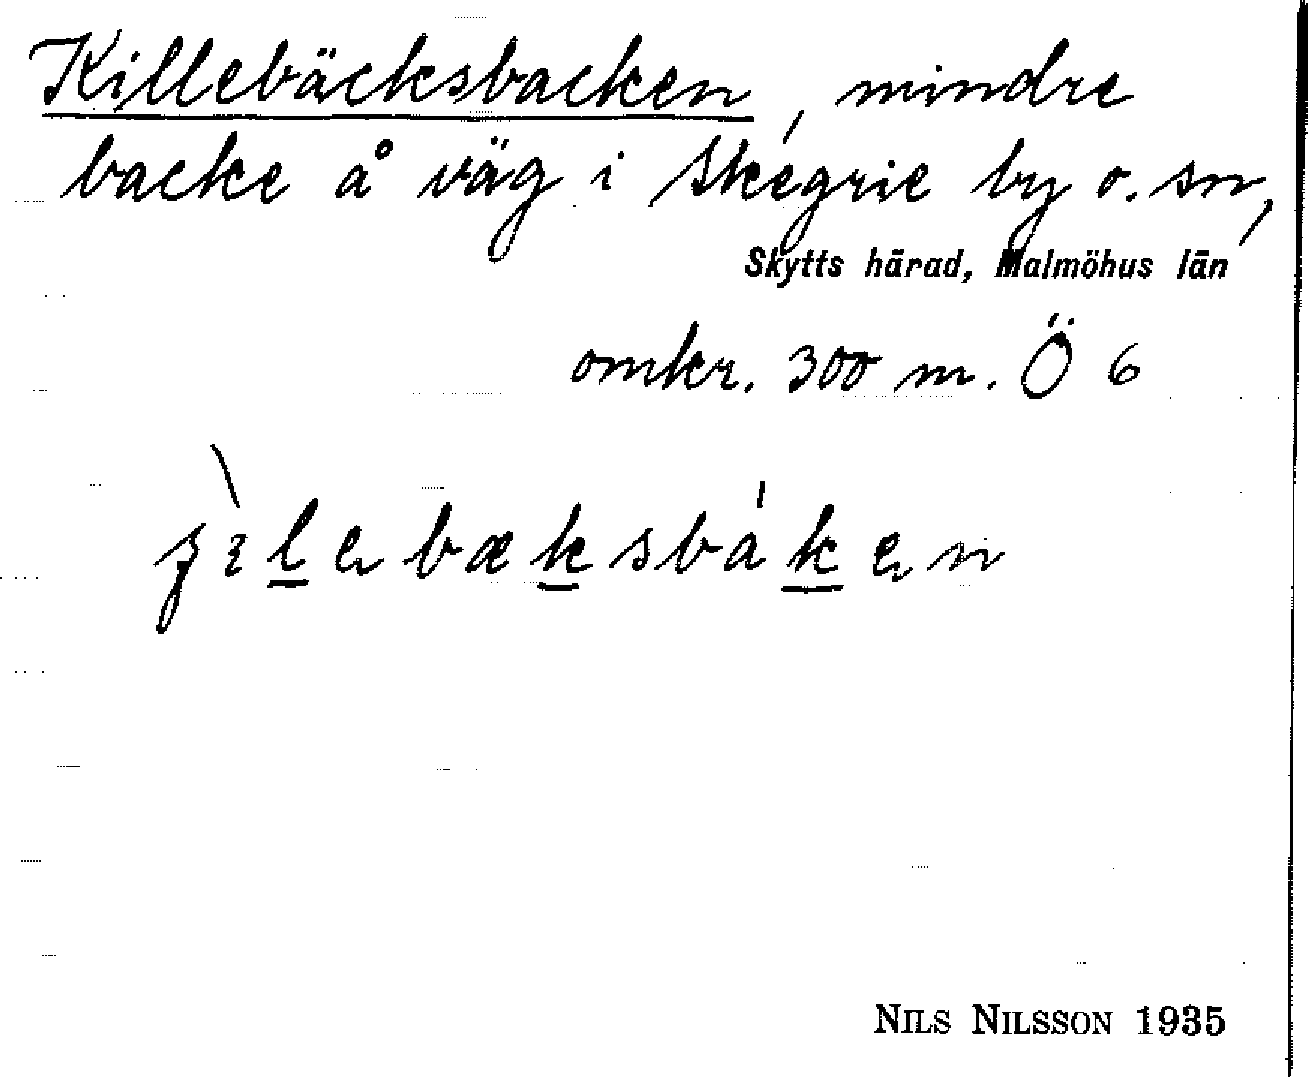 Killebäcksbacken, mindre
backe å väg i Skegrie by o. sn,
Skytts härad, Malmöhus län
omkr. 300 m. Ö 6
Nils Nilsson 1935